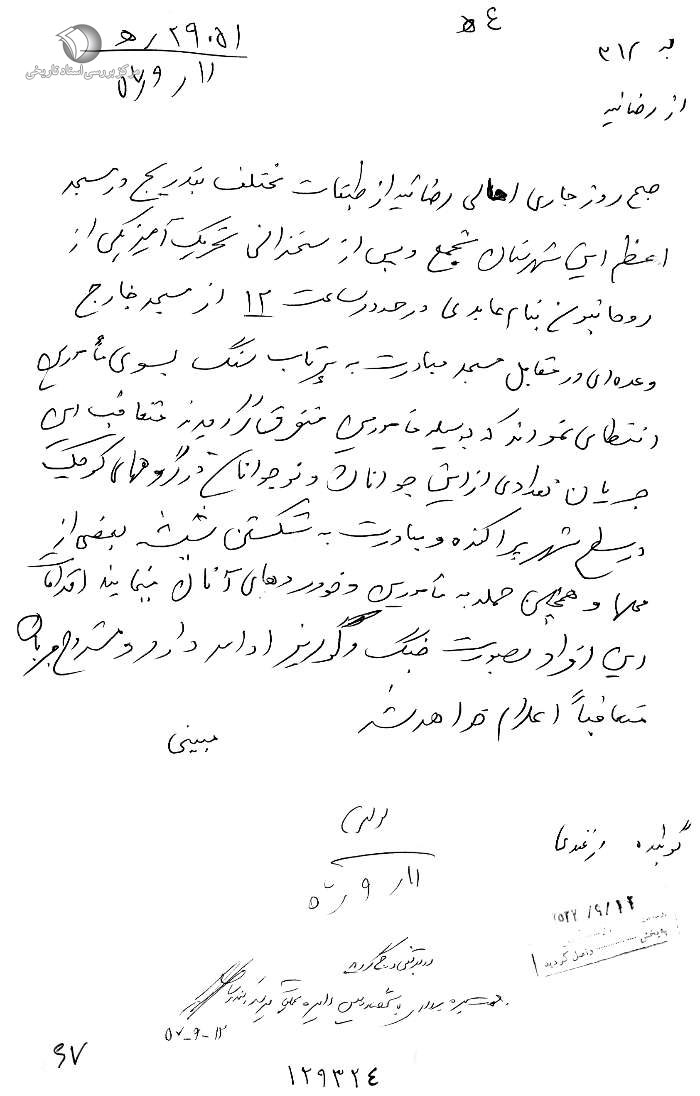 ۵ه ۲۹۰۵۱
۵۷٫۹٫۱۱
مرکز بررسی اسناد تاریخی
ه ۴
به ۳۱۲
از رضائیه
صبح روز جاری اهالی رضائیه از طبقات مختلف بتدریج در مسجد
اعظم این شهرستان تجمع و پس از سخنرانی تحریک آمیز یکی از
روحانیون بنام عابدی در حدود ساعت ۱۲ از مسجد خارج
و عده‌ای در مقابل مسجد مبادرت به پرتاب سنگ بسوی مأمورین
انتظامی نمودند که بوسیله مأمورین متفرق گردیدند متعاقب این
جریان تعدادی از این جوانان و نوجوانان در گروههای کوچک
در سطح شهر پراکنده و مبادرت به شکستن شیشه بعضی از
محلها و همچنین حمله به مأمورین و خودروهای آنان مینمایند اقدامات
این افراد بصورت جنگ و گریز ادامه دارد و مشروح جریان
متعاقباً اعلام خواهد شد
مبینی
گوینده مرندی
۱۱٫۹٫۵۷
۲۵۳۷/۹/۱۲
به بخش
داخل گردید
۵۷-۹-۱۲
۶۷
۱۲۹۳۲۴